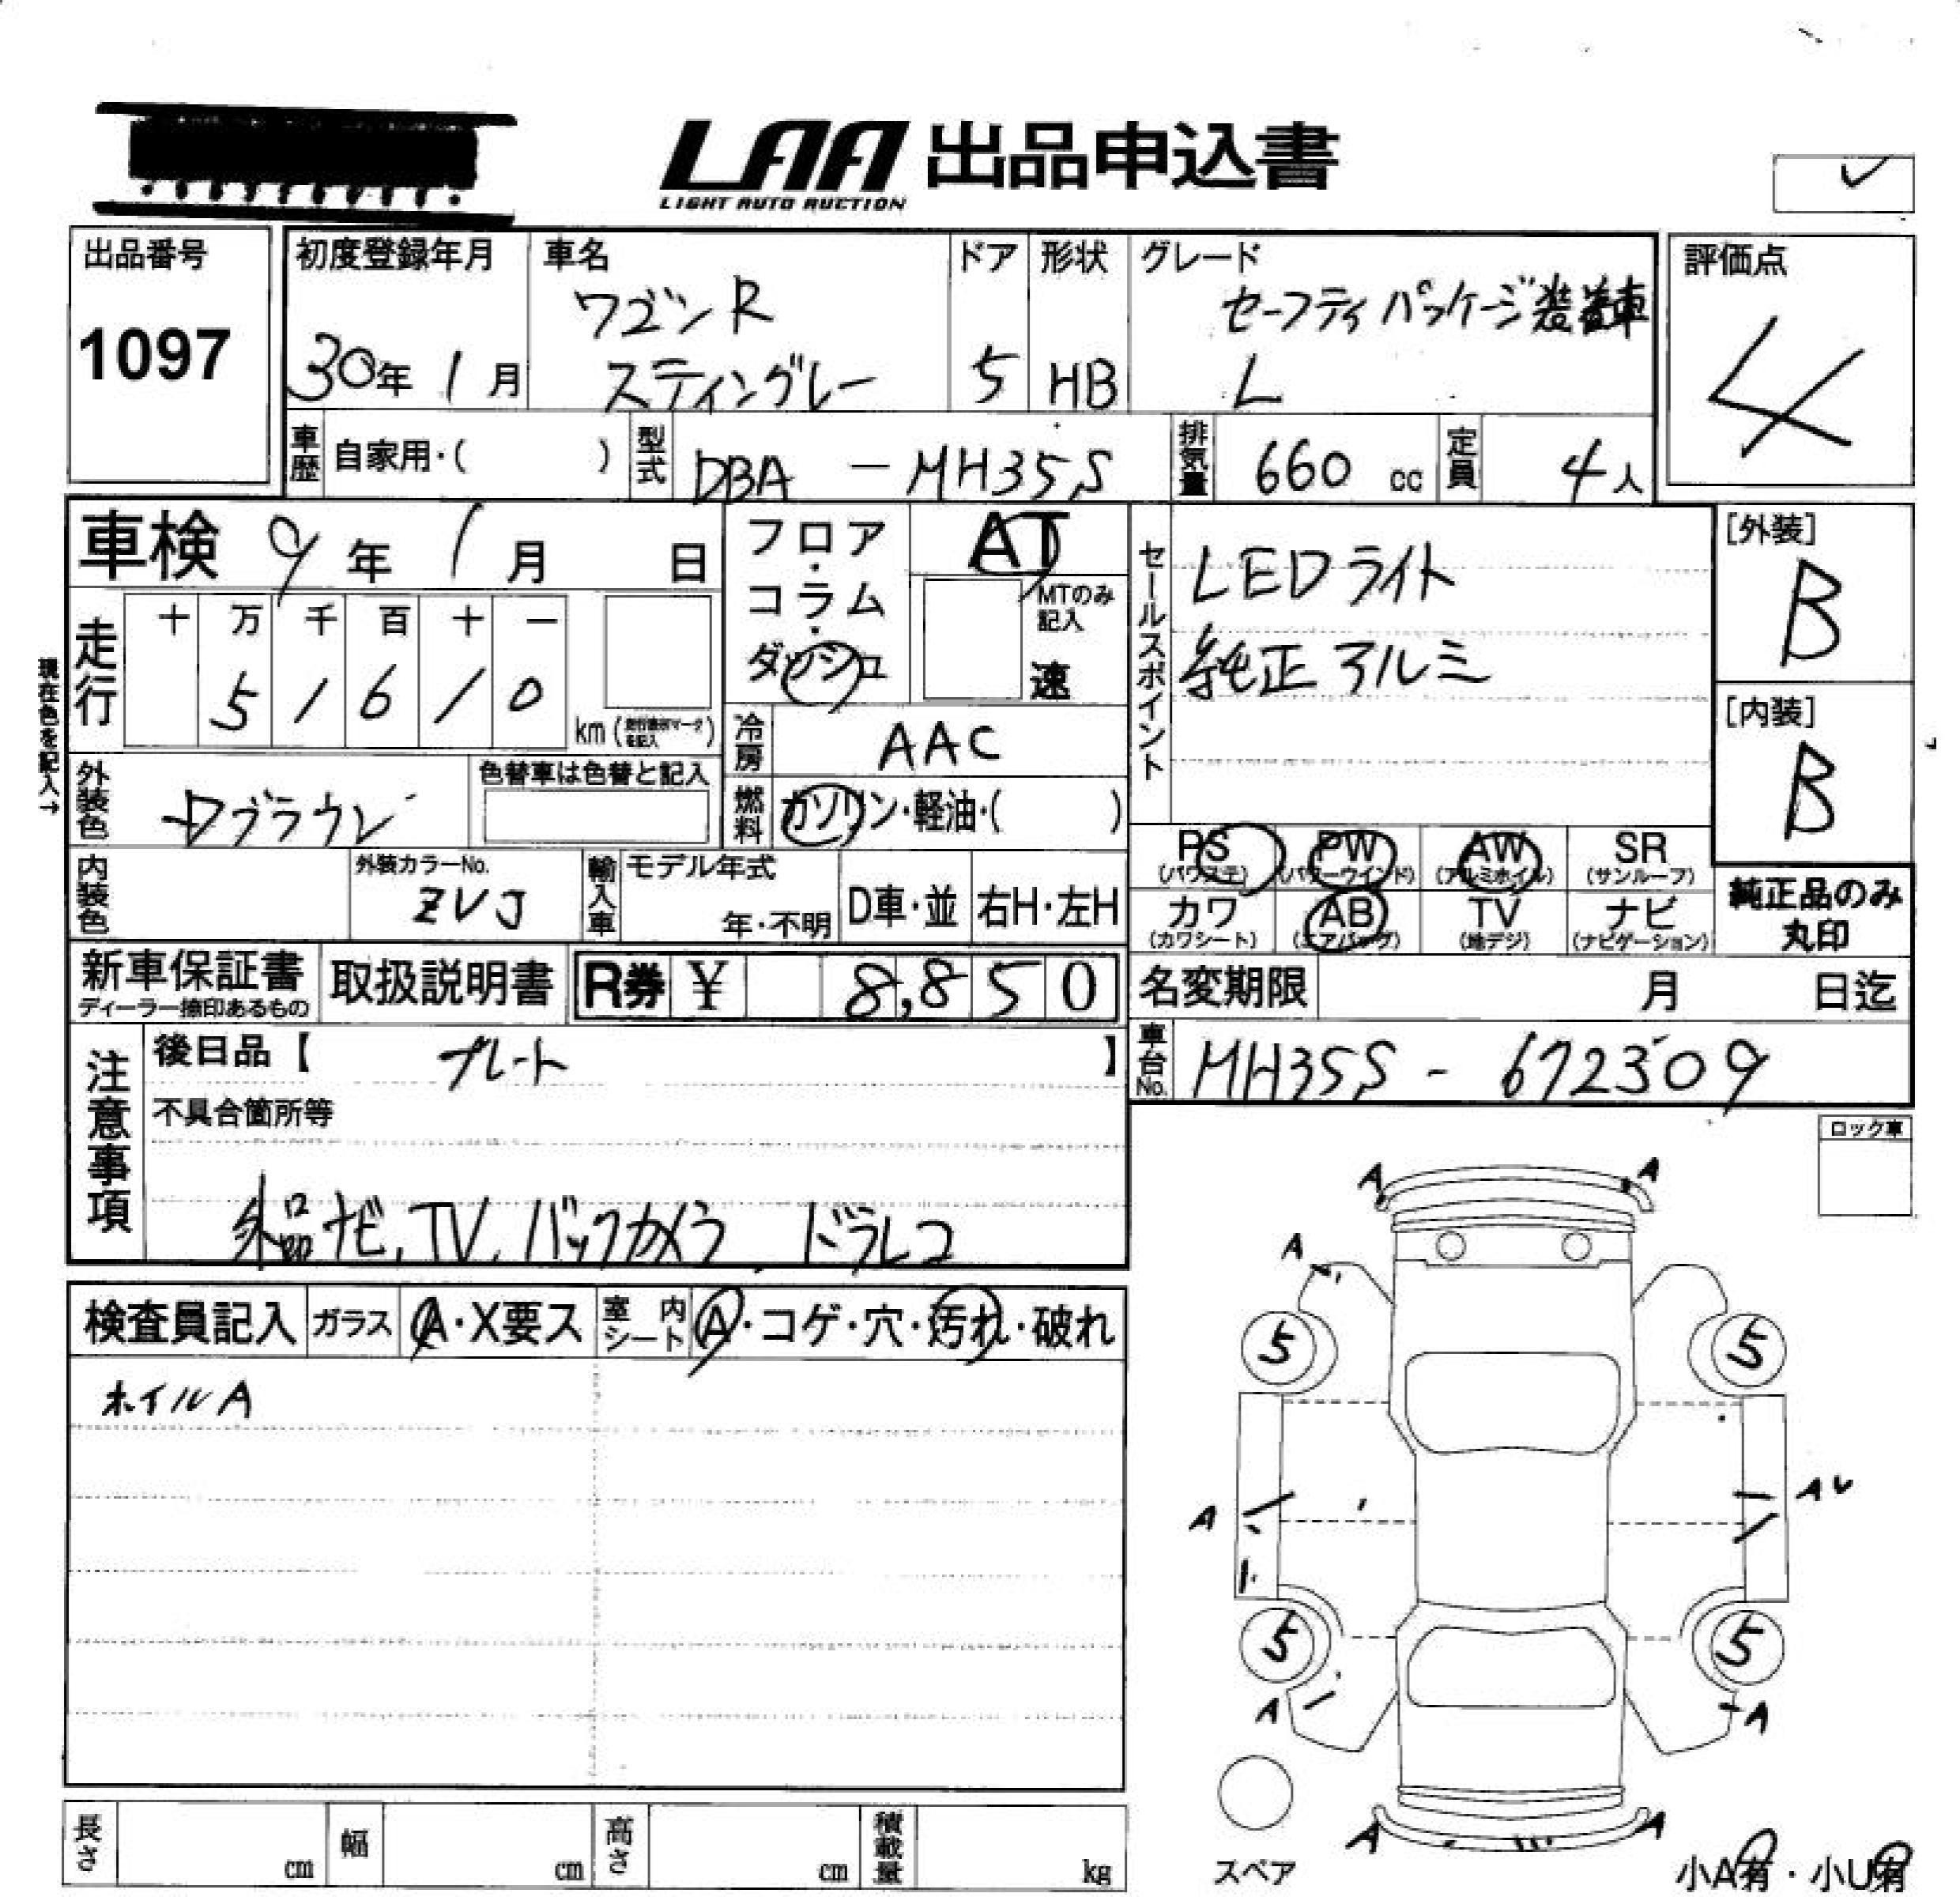 LAA 出品申込書
LIGHT AUTO AUCTION
出品番号
1097
初度登録年月
30年 1月
車名
ワゴンR
スティングレー
ドア
5
形状
HB
グレード
セーフティパッケージ装着車
L
評価点
4
車歴 自家用・( )
型式 DBA - MH35S
排気量 660 cc
定員 4人
車検 9年 1月 日
フロア・コラム・ダッシュ
AT
MTのみ記入
速
セールスポイント
LEDライト
純正アルミ
[外装]
B
[内装]
B
現在色を記入→
走行
十 万 千 百 十 一
5 1 6 1 0
km (走行換算マークを記入)
冷房 AAC
外装色
ブラウン
色替車は色替と記入
燃料 ガソリン・軽油・( )
PS (パワステ)
PW (パワーウインド)
AW (アルミホイル)
SR (サンルーフ)
内装色
外装カラーNo.
ZVJ
輸入車
モデル年式
年・不明
D車・並
右H・左H
カワ (カワシート)
AB (エアバッグ)
TV (地デジ)
ナビ (ナビゲーション)
純正品のみ
丸印
新車保証書
ディーラー捺印あるもの
取扱説明書
R券 ¥ 8,850
名変期限 月 日迄
注意事項
後日品【 プレート 】
不具合箇所等
外品ナビ, TV, バックカメラ, ドラレコ
車台No. MH35S - 672309
ロック車
検査員記入
ガラス A・X要ス
室内シート A・コゲ・穴・汚れ・破れ
ホイルA
A A
A
5 5
A AU
5 5
A A
A A
スペア
小A有・小U有
長さ cm
幅 cm
高さ cm
積載量 kg